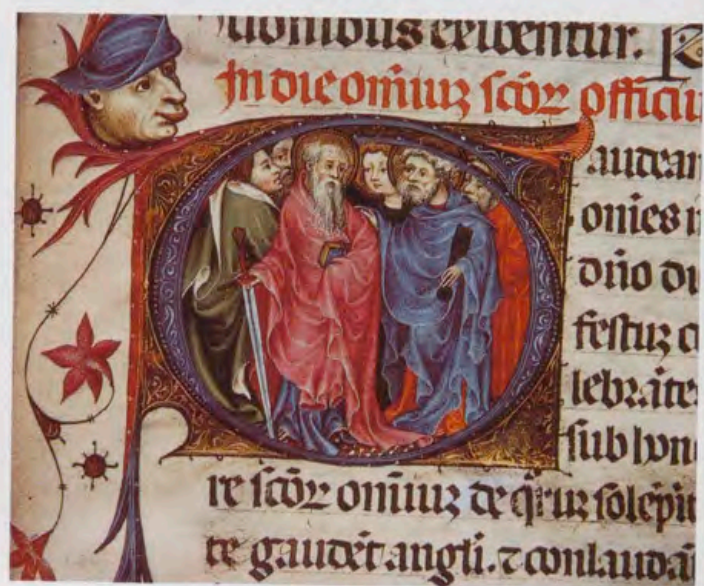 tionibus exiventur. R
In die om̄iuz sc̄oꝝ officiu
audeam
omnes i
dño di
festuz c
lebꝛāte
sub hon
re sc̄oꝝ om̄iuz de q̄ruz solēpit
te gaudēt angli. ⁊ conlaudā